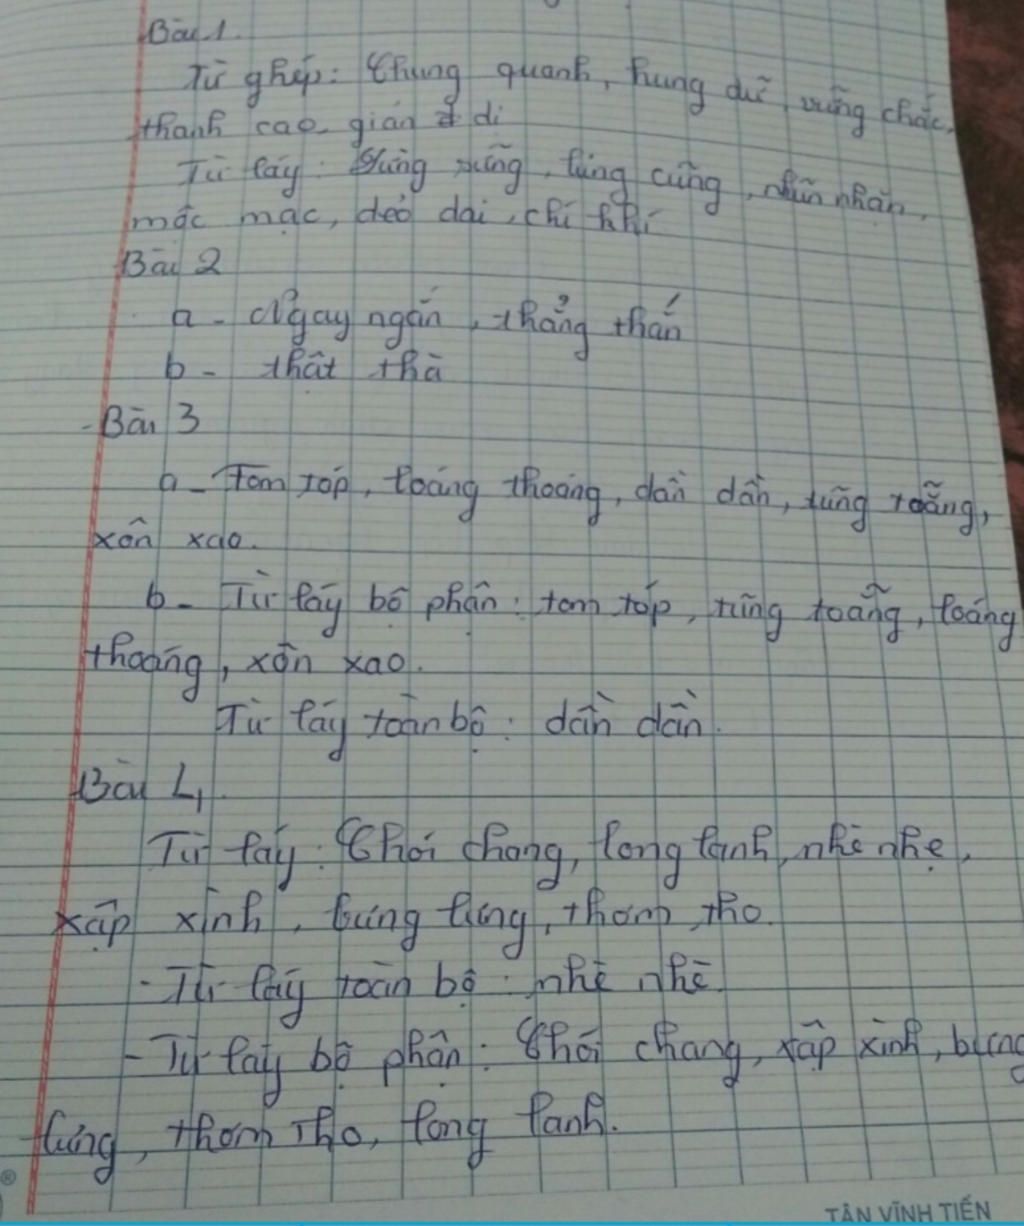 Bài 1.
Từ ghép: Chung quanh, hung dữ, vững chắc,
thanh cao, giản dị
Từ láy: Sừng sững, lủng củng, nhũn nhặn,
mộc mạc, dẻo dai, chí khí
Bài 2
a - Ngay ngắn, thẳng thắn
b - thật thà
- Bài 3
a - Tom tóp, loáng thoáng, dần dần, tũng toẵng,
xôn xao.
b - Từ láy bộ phận: tom tóp, tũng toẵng, loáng
thoáng, xôn xao.
Từ láy toàn bộ: dần dần.
Bài 4.
Từ láy: Chói chang, long lanh, nhè nhẹ,
xập xình, bưng lưng, thơm tho.
- Từ láy toàn bộ: nhè nhẽ
- Từ láy bộ phận: Chói chang, xập xình, bưng
lưng, thơm tho, long lanh.
TÂN VĨNH TIẾN